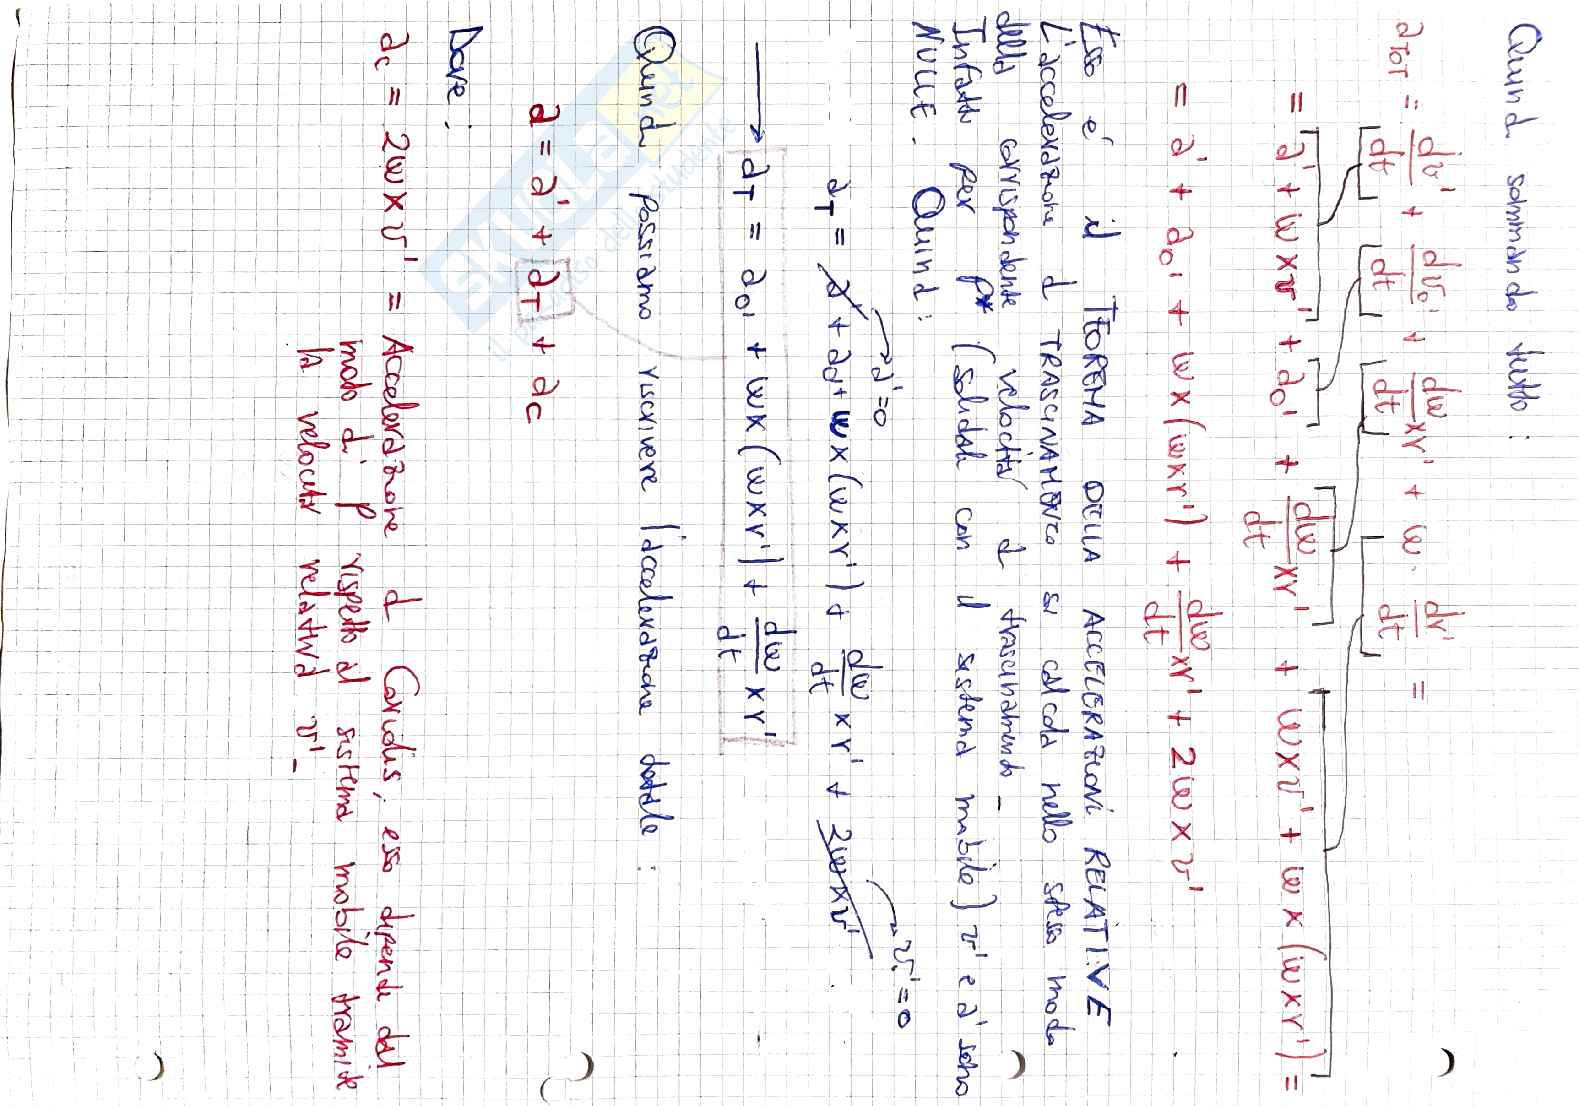 Quindi sommando tutto:
a_TOT = dv'/dt + dv_0'/dt + dω/dt × r' + ω · dr'/dt =
= a' + ω × v' + a_0' + dω/dt × r' + ω × v' + ω × (ω × r') =
= a' + a_0' + ω × (ω × r') + dω/dt × r' + 2ω × v'
Esso è il TEOREMA DELLA ACCELERAZIONI RELATIVE
L'accelerazione di TRASCINAMENTO si calcola nello stesso modo
della corrispondente velocità di trascinamento -
Infatti per P* (solidale con il sistema mobile) v' e a' sono
NULLE. Quindi:
a'=0
v'=0
a_T = a' + a_0' + ω × (ω × r') + dω/dt × r' + 2ω × v'
→ a_T = a_0' + ω × (ω × r') + dω/dt × r'
Quindi possiamo riscrivere l'accelerazione totale:
a = a' + a_T + a_c
SKUOLA
Dove:
a_c = 2ω × v' = Accelerazione di Coriolis, esso dipende dal
modo di P rispetto al sistema mobile tramite
la velocità relativa v' -